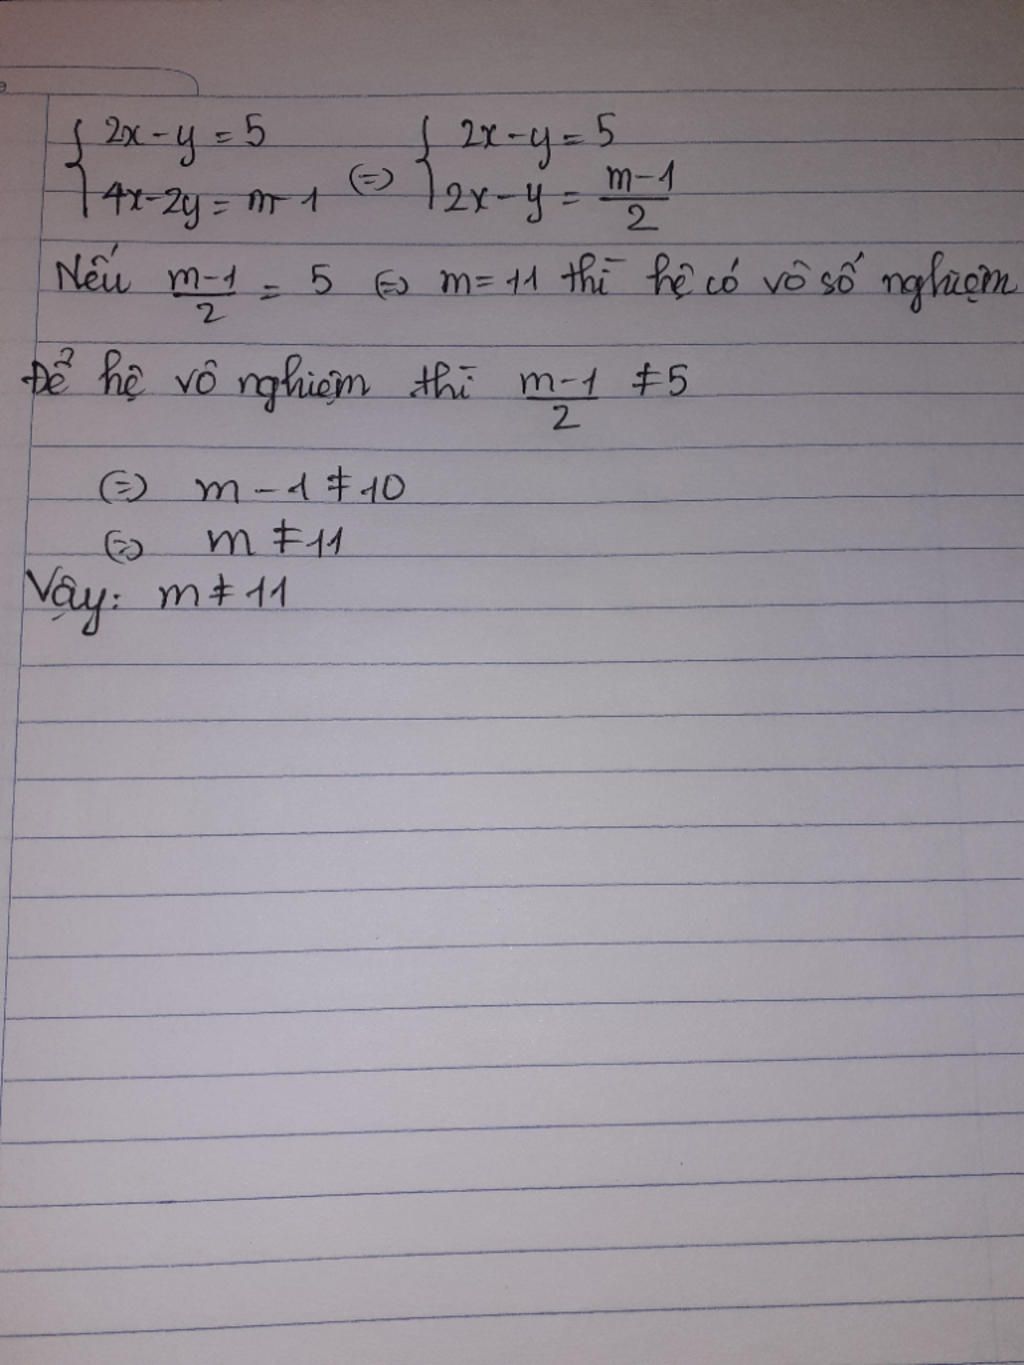 { 2x - y = 5 (=) { 2x - y = 5
{ 4x - 2y = m - 1 { 2x - y = (m-1)/2
Nếu (m-1)/2 = 5 (=) m = 11 thì hệ có vô số nghiệm
Để hệ vô nghiệm thì (m-1)/2 ≠ 5
(=) m - 1 ≠ 10
(=) m ≠ 11
Vậy: m ≠ 11